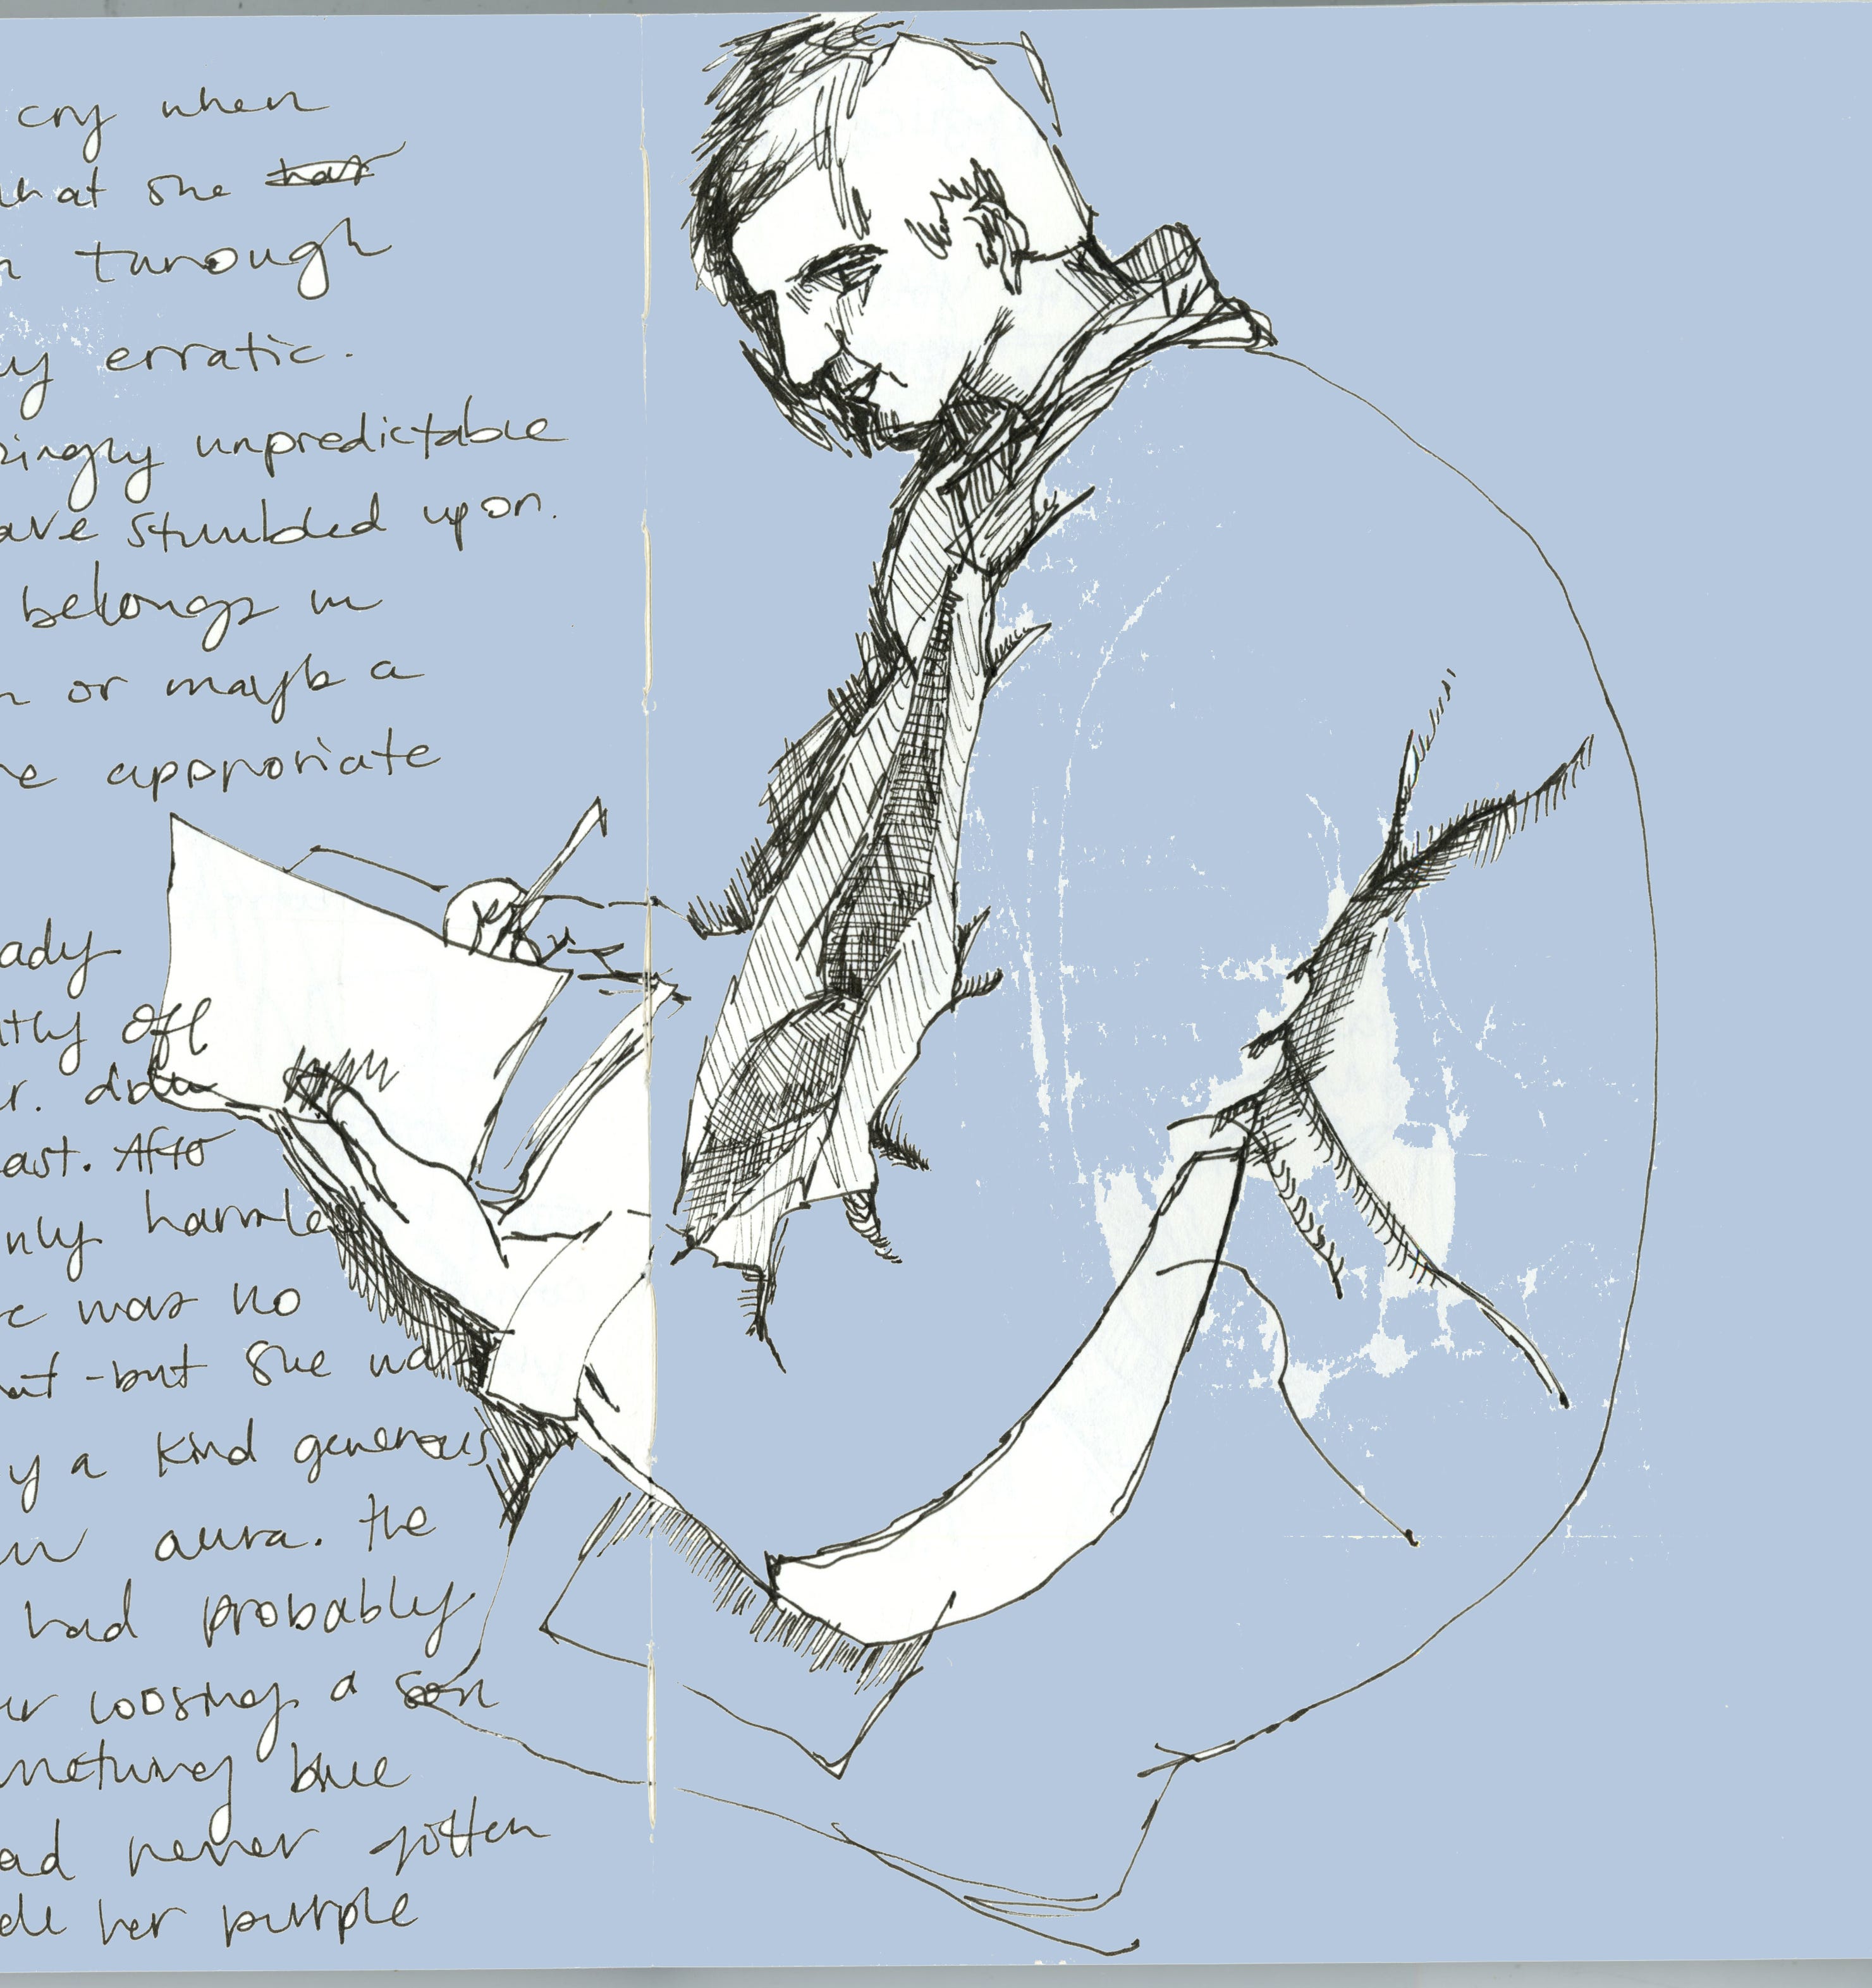 cry when
what she
through
erratic.
unpredictable
ave stumbled upon.
belongs in
or mayb a
approriate
ady
tly off
r. dow
ast. After
nly harmles
was no
at - but she was
y a kind generous
aura. the
had probably
loosing a son
mething blue
ad never gotten
her purple